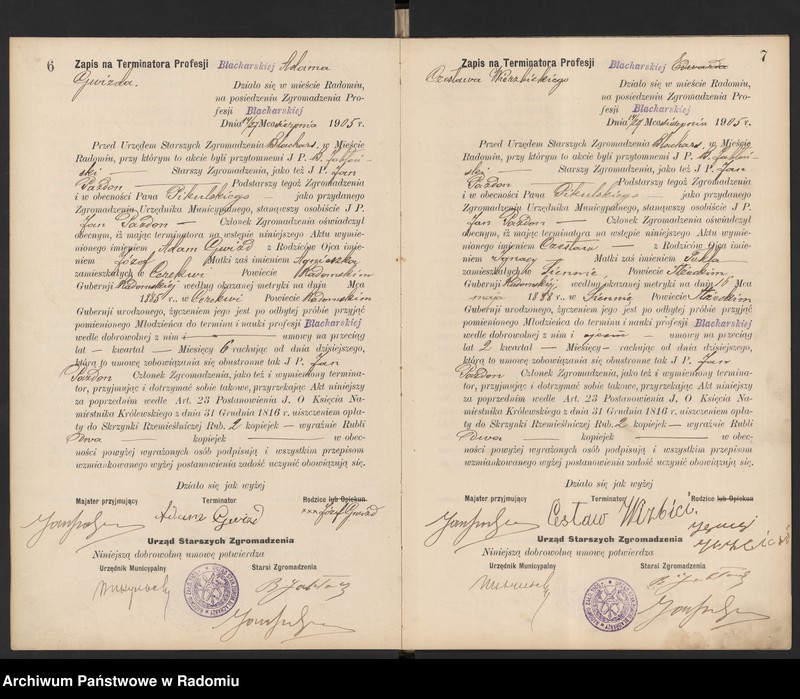 6
Zapis na Terminatora Profesji Blacharskiej Adama
Gwizda.
Działo się w mieście Radomiu,
na posiedzeniu Zgromadzenia Pro-
fesji Blacharskiej
Dnia 14/27 Mca sierpnia 1905 r.
Przed Urzędem Starszych Zgromadzenia Blachars. w Mieście
Radomiu, przy którym to akcie byli przytomnemi J P. B. Jabłoń-
ski Starszy Zgromadzenia, jako też J P. Jan
Pazdon Podstarszy tegoż Zgromadzenia
i w obecności Pana Pikulskiego jako przydanego
Zgromadzeniu Urzędnika Municypalnego, stanąwszy osobiście J P.
Jan Pazdon Członek Zgromadzenia oświadczył
obecnym, iż mając terminatora na wstępie niniejszego Aktu wymie-
nionego imieniem Adam Gwizd z Rodziców Ojca imie-
niem Józef Matki zaś imieniem Agnieszka
zamieszkałych w Cerekwi Powiecie Radomskim
Gubernji Radomskiej według okazanej metryki na dniu Mca
1885 r. w Cerekwi Powiecie Radomskim
Gubernji urodzonego, życzeniem jego jest po odbytej próbie przyjąć
pomienionego Młodzieńca do terminu i nauki profesji Blacharskiej
wedle dobrowolnej z nim i umowy na przeciąg
lat — kwartał — Miesięcy 6 rachując od dnia dzisiejszego,
którą to umowę zobowiązania się obustronne tak J P. Jan
Pazdon Członek Zgromadzenia, jako też i wymieniony termina-
tor, przyjmując i dotrzymać sobie takowe, przyrzekając Akt niniejszy
za poprzednim wedle Art. 23 Postanowienia J. O Księcia Na-
miestnika Królewskiego z dnia 31 Grudnia 1816 r. uiszczeniem opła-
ty do Skrzynki Rzemieślniczej Rub. 2 kopiejek — wyraźnie Rubli
Dwa kopiejek w obec-
ności powyżej wyrażonych osób podpisują i wszystkim przepisom
wzmiankowanego wyżej postanowienia zadość uczynić obowiązują się.
Działo się jak wyżej
Majster przyjmujący Terminator Rodzice lub Opiekun.
Adam Gwizd xxx Józef Gwizd
Urząd Starszych Zgromadzenia
Niniejszą dobrowolną umowę potwierdza
Urzędnik Municypalny Starsi Zgromadzenia
7
Zapis na Terminatora Profesji Blacharskiej Edwarda
Czesława Wierzbickiego
Działo się w mieście Radomiu,
na posiedzeniu Zgromadzenia Pro-
fesji Blacharskiej
Dnia 14/27 Mca sierpnia 1905 r.
Przed Urzędem Starszych Zgromadzenia Blachars. w Mieście
Radomiu, przy którym to akcie byli przytomnemi J P. B. Jabłoń-
ski Starszy Zgromadzenia, jako też J P. Jan
Pazdon Podstarszy tegoż Zgromadzenia
i w obecności Pana Pikulskiego jako przydanego
Zgromadzeniu Urzędnika Municypalnego, stanąwszy osobiście J P.
Jan Pazdon Członek Zgromadzenia oświadczył
obecnym, iż mając terminatora na wstępie niniejszego Aktu wymie-
nionego imieniem Czesława z Rodziców Ojca imie-
niem Ignacy Matki zaś imieniem Tekla
zamieszkałych w Siennie, Powiecie Iłżeckim
Gubernji Radomskiej, według okazanej metryki na dniu 16 Mca
maja 1888 r. w Siennie Powiecie Iłżeckim
Gubernji urodzonego, życzeniem jego jest po odbytej próbie przyjąć
pomienionego Młodzieńca do terminu i nauki profesji Blacharskiej
wedle dobrowolnej z nim i ojcem umowy na przeciąg
lat 2 kwartał — Miesięcy — rachując od dnia dzisiejszego,
którą to umowę zobowiązania się obustronne tak J P. Jan
Pazdon Członek Zgromadzenia, jako też i wymieniony termina-
tor, przyjmując i dotrzymać sobie takowe, przyrzekając Akt niniejszy
za poprzednim wedle Art. 23 Postanowienia J. O Księcia Na-
miestnika Królewskiego z dnia 31 Grudnia 1816 r. uiszczeniem opła-
ty do Skrzynki Rzemieślniczej Rub. 2 kopiejek — wyraźnie Rubli
Dwa kopiejek w obec-
ności powyżej wyrażonych osób podpisują i wszystkim przepisom
wzmiankowanego wyżej postanowienia zadość uczynić obowiązują się.
Działo się jak wyżej
Majster przyjmujący Terminator Rodzice lub Opiekun
Cesław Wirzbici.
Urząd Starszych Zgromadzenia
Niniejszą dobrowolną umowę potwierdza
Urzędnik Municypalny Starsi Zgromadzenia
Archiwum Państwowe w Radomiu